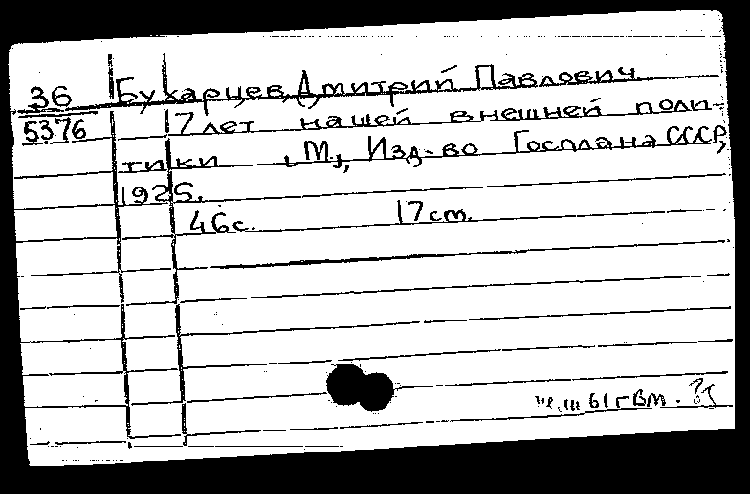 36 Бухарцев, Дмитрий Павлович
5376 7 лет нашей внешней поли-
тики , М., Изд-во Госплана СССР,
1925.
46с. 17 cm.
61 г Вм.